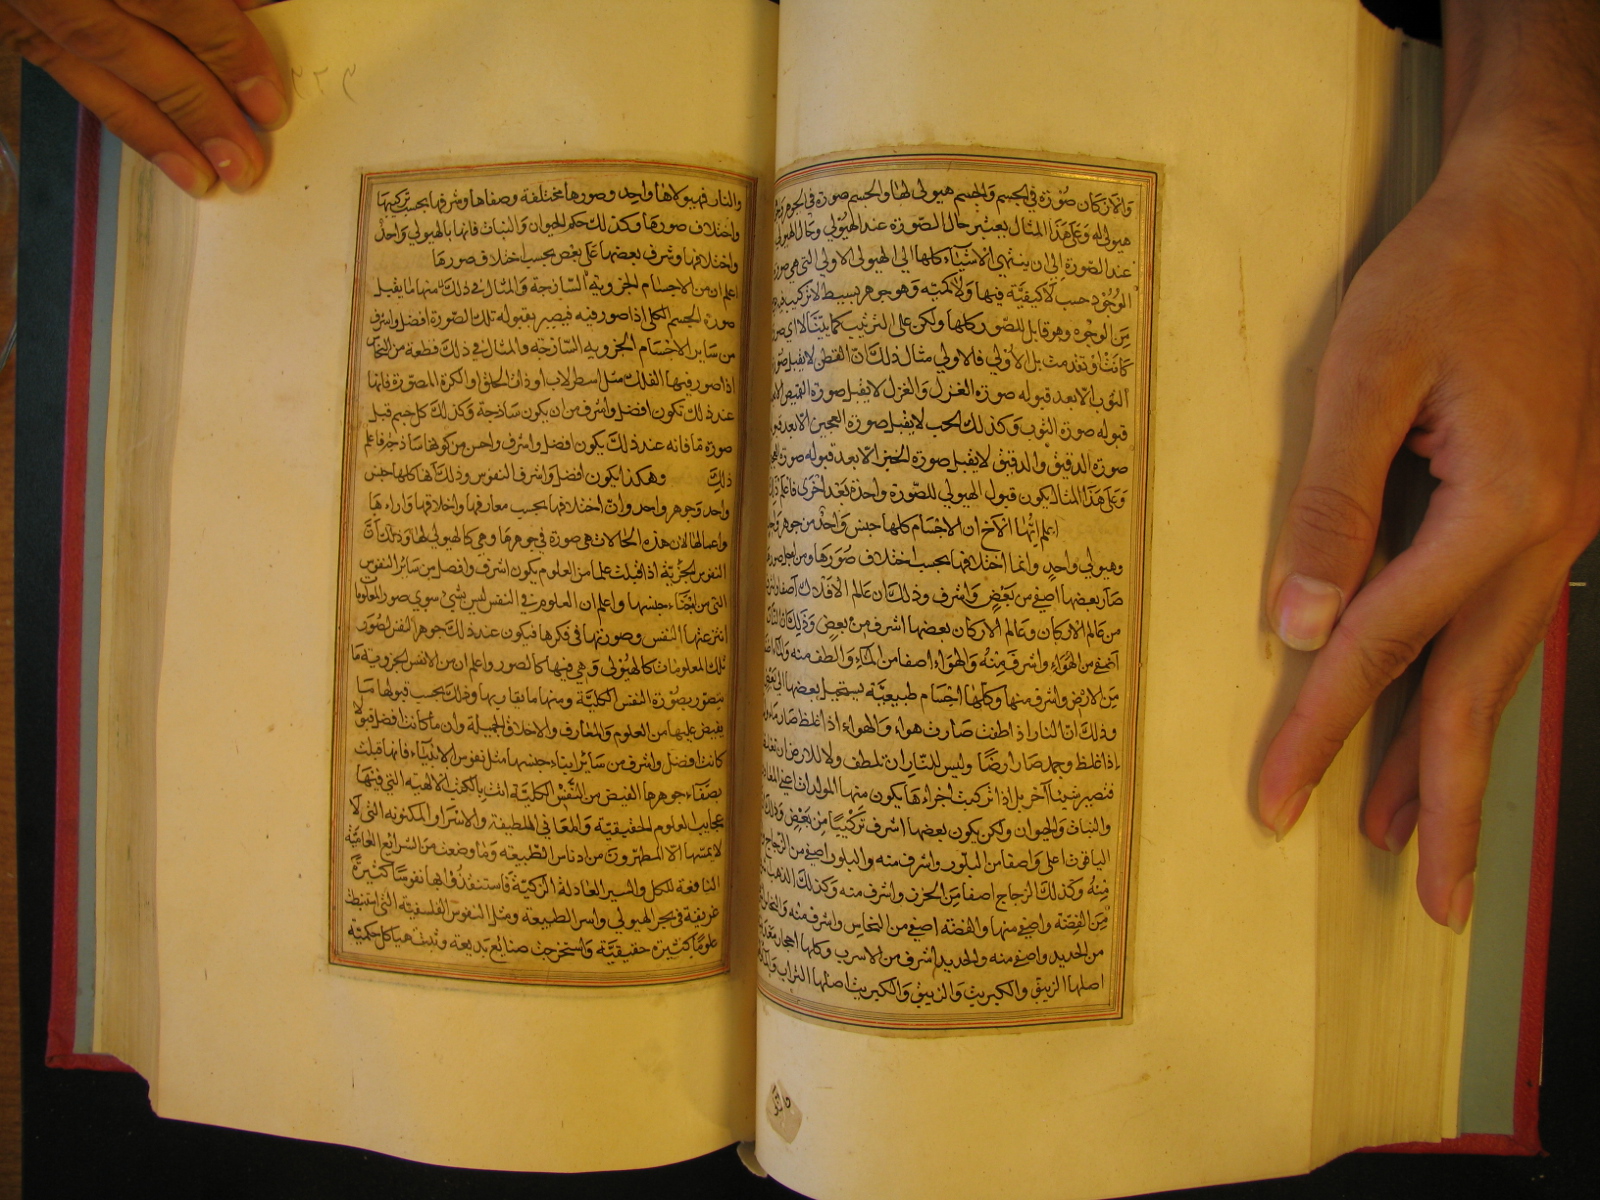 والاركان صورة في الجسم والجسم هيولى لها والجسم صورة في الجوهر
هيولى له وعلى هذا المثال يعتبر حال الصورة عند الهيولى وحال الهيولى
عند الصورة إلى ان ينتهي الاشياء كلها الى الهيولى الاولى التي هي صورة
الوجود حسب لا كيفية فيها ولا كمية وهو جوهر بسيط لا تركيب فيه
من الوجوه وهو قابل للصور كلها ولكن على الترتيب كما بينا لا اي صورة
كانت او تقدمت بل الاولى فالاولى مثال ذلك ان القطن لا يقبل صورة
الثوب الا بعد قبوله صورة الغزل والغزل لا يقبل صورة القميص الا بعد
قبوله صورة الثوب وكذلك الحب لا يقبل صورة العجين الا بعد قبوله
صورة الدقيق والدقيق لا يقبل صورة الخبز الا بعد قبوله صورة العجين
وعلى هذا المثال يكون قبول الهيولى للصورة واحدة بعد اخرى فاعلم ذلك
اعلم ايها الاخ ان الاجسام كلها جنس واحد من جوهر واحد
وهيولى واحدٍ وانما اختلافها بحسب اختلاف صورها ومن اجل صورها
صار بعضها اصفى من بعضٍ واشرف وذلك ان عالم الافلاك اصفى واشرف
من عالم الاركان وعالم الاركان بعضها اشرف من بعضٍ وذلك ان النار
اصفى من الهواء واشرف منه والهواء اصفا من الماء والطف منه والماء
من الارض واشرف منها وكلها اجسام طبيعية يستحيل بعضها الى بعض
وذلك ان النار اذا طفت صارت هواء والهواء اذا غلظ صار ماء
اذا غلظ وجمد صار ارضًا وليس للنار ان تلطف ولا للارض ان تغلظ
فتصير شيئا آخر بل اذا تركبت اجزاءها يكون منها المولدات اعني المعادن
والنبات والحيوان ولكن يكون بعضها اشرف تركيبًا من بعضٍ وذلك
الياقوت اعلى واصفا من البلور واشرف منه والبلور اصفى من الزجاج
منه وكذلك الزجاج اصفا من الخزف واشرف منه وكذلك الذهب
من الفضة واصفى منها والفضة اصفى من النحاس واشرف منه والنحاس
من الحديد واصفى منه والحديد اشرف من الاسرب وكلها احجار معدنية
اصلها الزيبق والكبريت والزيبق والكبريت اصلها التراب والماء
والنار فهيولاها واحد وصورها مختلفة وصفاها وشرفها بحسب تركيبها
واختلاف صورها وكذلك حكم الحيوان والنبات فانها بالهيولى واحد
واختلافها وشرف بعضها على بعض بحسب اختلاف صورها
اعلم ان من الاجسام الجزوية الساذجة والمثال في ذلك منها ما يقبل
صورة الجسم الكلى اذا صور فيه فيصير بقبوله تلك الصورة افضل واشرف
من ساير الاجسام الجزوية الساذجة والمثال في ذلك قطعة من النحاس
اذا صور فيها الفلك مثل اسطرلاب او ذات الحلق او الكرة المصورة فانها
عند ذلك تكون افضل واشرف من ان يكون ساذجة وكذلك كل جسم قبل
صورة ما فانه عند ذلك يكون افضل واشرف واحسن من كونه ساذجا فاعلم
ذلك وهكذا يكون افضل واشرف النفوس وذلك انها كلها جنس
واحد وجوهر واحد وان اختلافها بحسب معارفها واخلاقها واراءها
واعمالها لان هذه الحالات هي صورة في جوهرها وهي كالهيولى لها وذلك ان
النفوس الجزوية اذا قبلت علما من العلوم يكون اشرف وافضل من سائر النفوس
التي من ابناء جنسها واعلم ان العلوم في النفس ليس بشيء سوى صور المعلومات
انتزعتها النفس وصورتها في فكرها فيكون عند ذلك جوهر النفس لصور
تلك المعلومات كالهيولى وهي فيها كالصور واعلم ان من الانفس الجزوية ما
يتصور بصورة النفس الكلية ومنها ما يقاربها وذلك بحسب قبولها ما
يفيض عليها من العلوم والمعارف والاخلاق الجميلة وان ما كانت افضل قبولا
كانت افضل واشرف من سائر ابناء جنسها مثل نفوس الانبياء فانها قبلت
بصفاء جوهرها الفيض من النفس الكلية اتت بالكتب الالهية التي فيها
عجايب العلوم الحقيقية والمعاني اللطيفة والاسرار المكنونه التي لا
لا يمسها الا المطهرون من ادناس الطبيعه وما وضعت من الشرايع العامية
النافعة للكل والسير العادلة الزكية فاستنقذوا بها نفوسًا كثيرة
غريقة في بحر الهيولى واسر الطبيعه ومثل النفوس الفلسفية التي استنبطت
علومًا كثيرة حقيقية واستخرجت صنايع بديعة وبنت هياكل حكمية